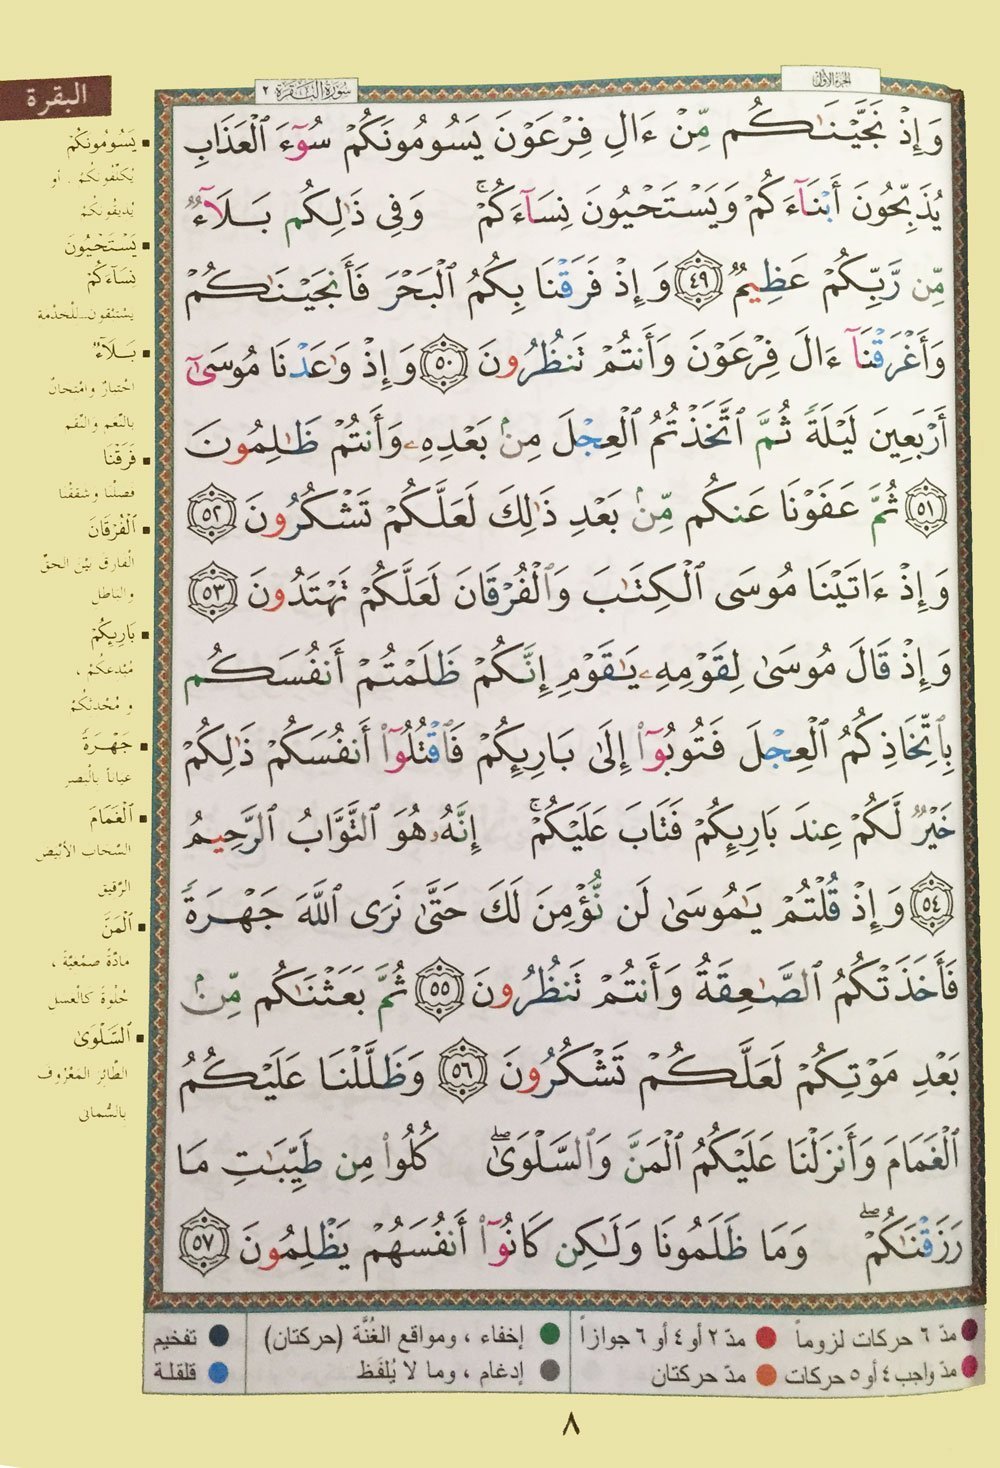 الجزء الأول
سورة البقرة ٢
البقرة
وَإِذْ نَجَّيْنَـٰكُم مِّنْ ءَالِ فِرْعَوْنَ يَسُومُونَكُمْ سُوٓءَ ٱلْعَذَابِ
يُذَبِّحُونَ أَبْنَآءَكُمْ وَيَسْتَحْيُونَ نِسَآءَكُمْ ۚ وَفِى ذَٰلِكُم بَلَآءٌ
مِّن رَّبِّكُمْ عَظِيمٌ ٤٩ وَإِذْ فَرَقْنَا بِكُمُ ٱلْبَحْرَ فَأَنجَيْنَـٰكُمْ
وَأَغْرَقْنَآ ءَالَ فِرْعَوْنَ وَأَنتُمْ تَنظُرُونَ ٥٠ وَإِذْ وَٰعَدْنَا مُوسَىٰٓ
أَرْبَعِينَ لَيْلَةً ثُمَّ ٱتَّخَذْتُمُ ٱلْعِجْلَ مِنۢ بَعْدِهِۦ وَأَنتُمْ ظَـٰلِمُونَ
٥١ ثُمَّ عَفَوْنَا عَنكُم مِّنۢ بَعْدِ ذَٰلِكَ لَعَلَّكُمْ تَشْكُرُونَ ٥٢
وَإِذْ ءَاتَيْنَا مُوسَى ٱلْكِتَـٰبَ وَٱلْفُرْقَانَ لَعَلَّكُمْ تَهْتَدُونَ ٥٣
وَإِذْ قَالَ مُوسَىٰ لِقَوْمِهِۦ يَـٰقَوْمِ إِنَّكُمْ ظَلَمْتُمْ أَنفُسَكُم
بِٱتِّخَاذِكُمُ ٱلْعِجْلَ فَتُوبُوٓا۟ إِلَىٰ بَارِئِكُمْ فَٱقْتُلُوٓا۟ أَنفُسَكُمْ ذَٰلِكُمْ
خَيْرٌ لَّكُمْ عِندَ بَارِئِكُمْ فَتَابَ عَلَيْكُمْ ۚ إِنَّهُۥ هُوَ ٱلتَّوَّابُ ٱلرَّحِيمُ
٥٤ وَإِذْ قُلْتُمْ يَـٰمُوسَىٰ لَن نُّؤْمِنَ لَكَ حَتَّىٰ نَرَى ٱللَّهَ جَهْرَةً
فَأَخَذَتْكُمُ ٱلصَّـٰعِقَةُ وَأَنتُمْ تَنظُرُونَ ٥٥ ثُمَّ بَعَثْنَـٰكُم مِّنۢ
بَعْدِ مَوْتِكُمْ لَعَلَّكُمْ تَشْكُرُونَ ٥٦ وَظَلَّلْنَا عَلَيْكُمُ
ٱلْغَمَامَ وَأَنزَلْنَا عَلَيْكُمُ ٱلْمَنَّ وَٱلسَّلْوَىٰ ۖ كُلُوا۟ مِن طَيِّبَـٰتِ مَا
رَزَقْنَـٰكُمْ ۖ وَمَا ظَلَمُونَا وَلَـٰكِن كَانُوٓا۟ أَنفُسَهُمْ يَظْلِمُونَ ٥٧
يَسُومُونَكُمْ
يُكَلِّفُونَكُمْ . أو
يُذيقُونكُمْ
يَسْتَحْيُونَ
نِسَآءَكُمْ
يستبْقون...للْخدْمة
بَلَآءٌ
اخْتبارٌ وامْتحانٌ
بالنّعم والنّقم
فَرَقْنَا
فصلْنا وشققْنا
ٱلْفُرْقَانَ
الْفارق بيْن الحقّ
والباطل
بَارِئِكُمْ
مُبْدعكُمْ ،
و مُحْدثكُمْ
جَهْرَةً
عياناً بالْبصر
ٱلْغَمَامَ
السّحاب الأبْيض
الرّقيق
ٱلْمَنَّ
مادّةً صمْغيّةً ،
حُلْوةً كالْعسل
ٱلسَّلْوَىٰ
الطّائر المعْرُوف
بالسُّمانى
مدّ ٦ حركات لزوماً
مدّ ٢ أو ٤ أو ٦ جوازاً
إخفاء ، ومواقع الغُنَّة (حركتان)
تفخيم
مدّ واجب ٤ أو ٥ حركات
مدّ حركتان
إدغام ، وما لا يُلفَظ
قلقلة
٨